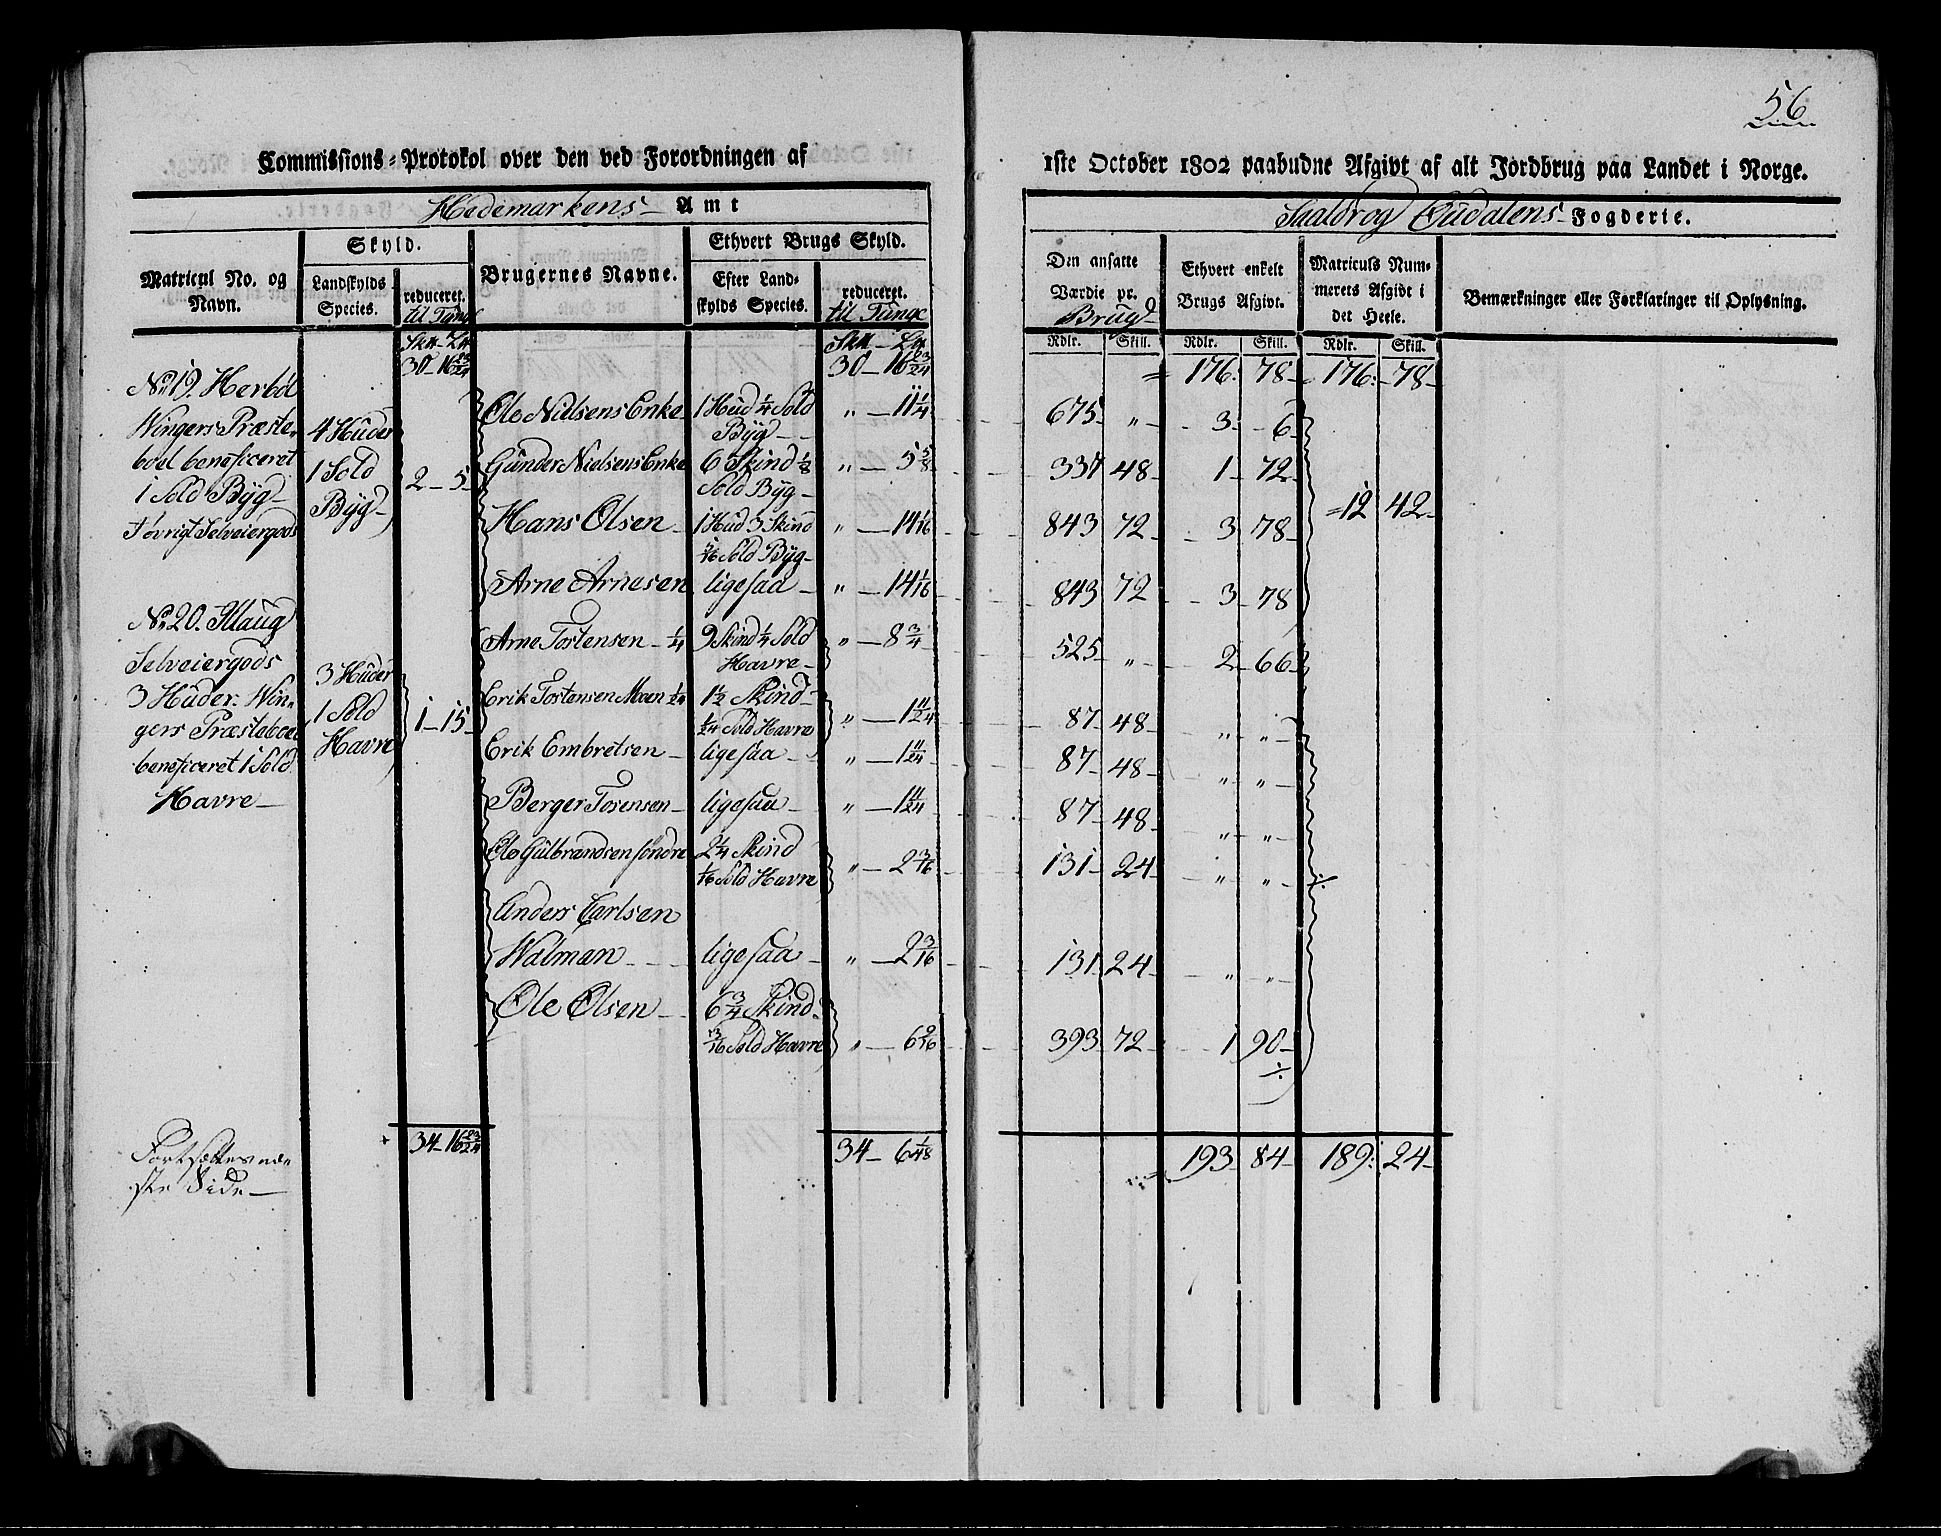 56
Commissions-Protokol over den ved Forordningen af 1ste October 1802 paabudne Afgivt af alt Jordbrug paa Landet i Norge.
Hedemarkens Amt
Fogderie.
Matricul No. og Navn.
Skyld.
Landskylds Species.
reduceret. til Tunge
Brugernes Navne.
Ethvert Brugs Skyld.
Efter Landskylds Species.
reduceret. til Tunge
Den ansatte Værdie pr. Brug
Ethvert enkelt Brugs Afgivt.
Matriculs Nummerets Afgivt i det Heele.
Bemærkninger eller Forklaringer til Oplysning.
Rdlr. Skill. Rdlr. Skill. Rdlr. Skill.
30 - 16 23/24 30 - 16 23/24 176: 78 176: 78
No. 19. Herböl
Wingers Præste-
boel beneficeret
1 Sold Byg
i övrigt Selveiergods
4 Huder
1 Sold
Byg
2 - 5
Ole Nielsens Enke 1 Hud 1/4 Sold Byg " - 11 1/4 675 " 3 6
Gunder Nielsens Enke 6 Skind 1/8 Sold Byg " - 5 5/8 337 48 1 72
Hans Olsen 1 Hud 3 Skind 5/16 Sold Byg " - 14 1/16 843 72 3 78
12 42
Arne Arnesen ligesaa " - 14 1/16 843 72 3 78
No. 20. Klaug
Selveiergods
3 Huder. Win-
gers Præsteboel
beneficeret 1 Sold
Havre
3 Huder
1 Sold
Havre
1 - 15
Arne Tostensen 1/4 9 Skind 1/4 Sold Havre " - 8 3/4 525 " 2 66
Erik Tostensen Moen 1/24 1 1/2 Skind 1/24 Sold Havre " - 1 11/24 87 48 " "
Erik Embretsen ligesaa " - 1 11/24 87 48 " "
Berger Torensen ligesaa " - 1 11/24 87 48 " "
Ole Gulbrandsen söndre 2 1/4 Skind 1/16 Sold Havre " - 2 3/16 131 24 " "
Anders Carlsen
Walman ligesaa " - 2 3/16 131 24 " "
Ole Olsen 6 3/4 Skind 13/16 Sold Havre " - 6 9/16 393 72 1 90
Fortsættes næ-
ste Side
34 - 16 23/24 34 - 6 1/48 193 84 189: 24